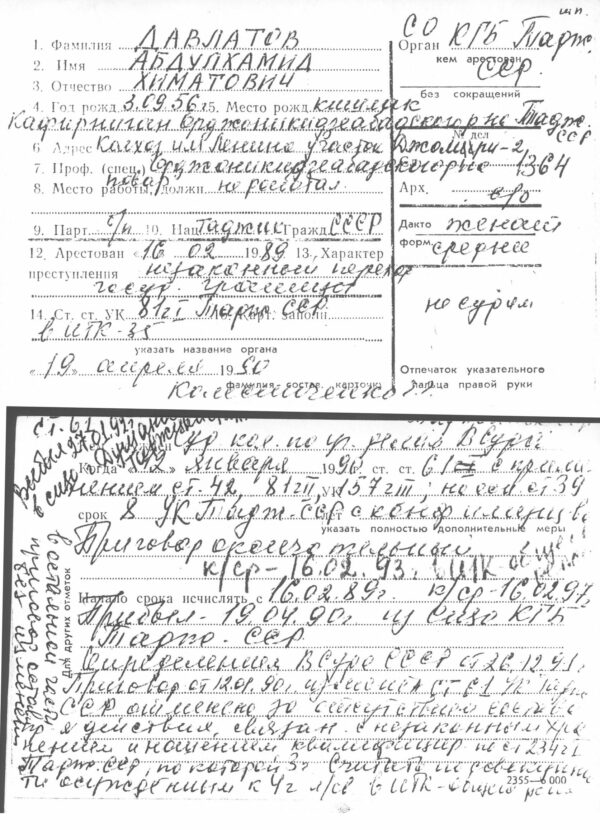 1. Фамилия ДАВЛАТОВ
2. Имя АБДУЛХАМИД
3. Отчество ХИМАТОВИЧ
4. Год рожд. 3.09.56г. 5. Место рожд. кишлак
Кафирниган Орджоникидзеабадского р-на Тадж.
ССР
6. Адрес Колхоз им Ленина участок Джамгари-2,
7. Проф. (спец.) Орджоникидзеабадского р-на
повар
8. Место работы, должн. не работал
9. Парт. б/п 10. Нац. Таджик Гражд. СССР
12. Арестован «16 02 1989 13. Характер
преступления незаконный переход
госуд. границы
14. Ст. ст. УК 81 ч I Тадж ССР
15. Карт. заполн.
в ИТК-35
указать название органа
«19» апреля 1990
Колесниченко
фамилия состав. карточку
СО
Орган КГБ Тадж.
кем арестован
ССР
без сокращений
№ дел
1364
Арх.
с/о
Дакто женат
форм. среднее
не судим
Отпечаток указательного
пальца правой руки
Выбыл 27.01.92г
в сизо Душанбе
Суд кол. по уг. делам В Суда
Когда «12» января 1990 ст. ст. 61 с приме-
нением ст. 42, 81 ч I, УК 157 ч III; на осн ст 39
срок 8 УК Тадж. ССР с конфискац
указать полностью дополнительные меры
Приговор окончательный
к/ср - 16.02.93. в ИТК общего
Начало срока исчислять с 16.02.89г. к/ср - 16.02.97г
Прибыл - 19.04.90г из Сизо КГБ
Тадж. ССР
Для других отметок
Определением В Суда СССР от 26.12.91г.
Приговор от 12.01.90г изменен ст 61 УК Тадж
ССР отменено за отсутствием состава
действия, связан с незаконным хра
нением и ношением квалифицир по ст 234 ч I
Тадж. ССР, по которой 3г Считать по совокупнос
ти осужденным к 4г л/св в ИТК-общего реж
2355—6 000
в остальной части
приговор оставлен
без изменений